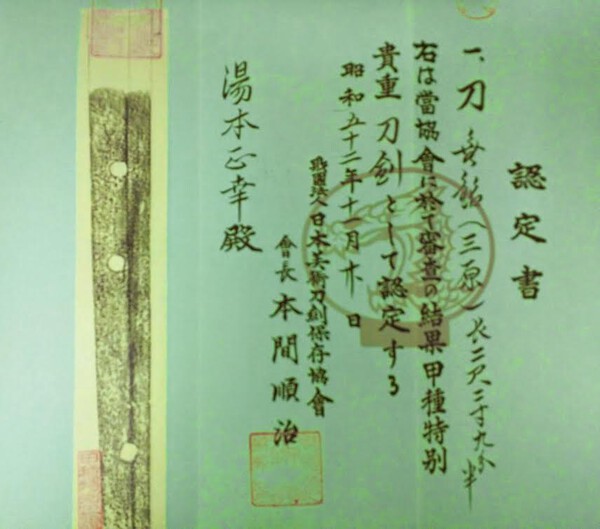 認定書
一、刀 無銘(三原)長二尺二寸九分半
右は當協會に於て審査の結果甲種特別
貴重刀剣として認定する
昭和五十二年十一月廿日
財團法人日本美術刀剣保存協會
會長 本間順治
湯本正幸殿